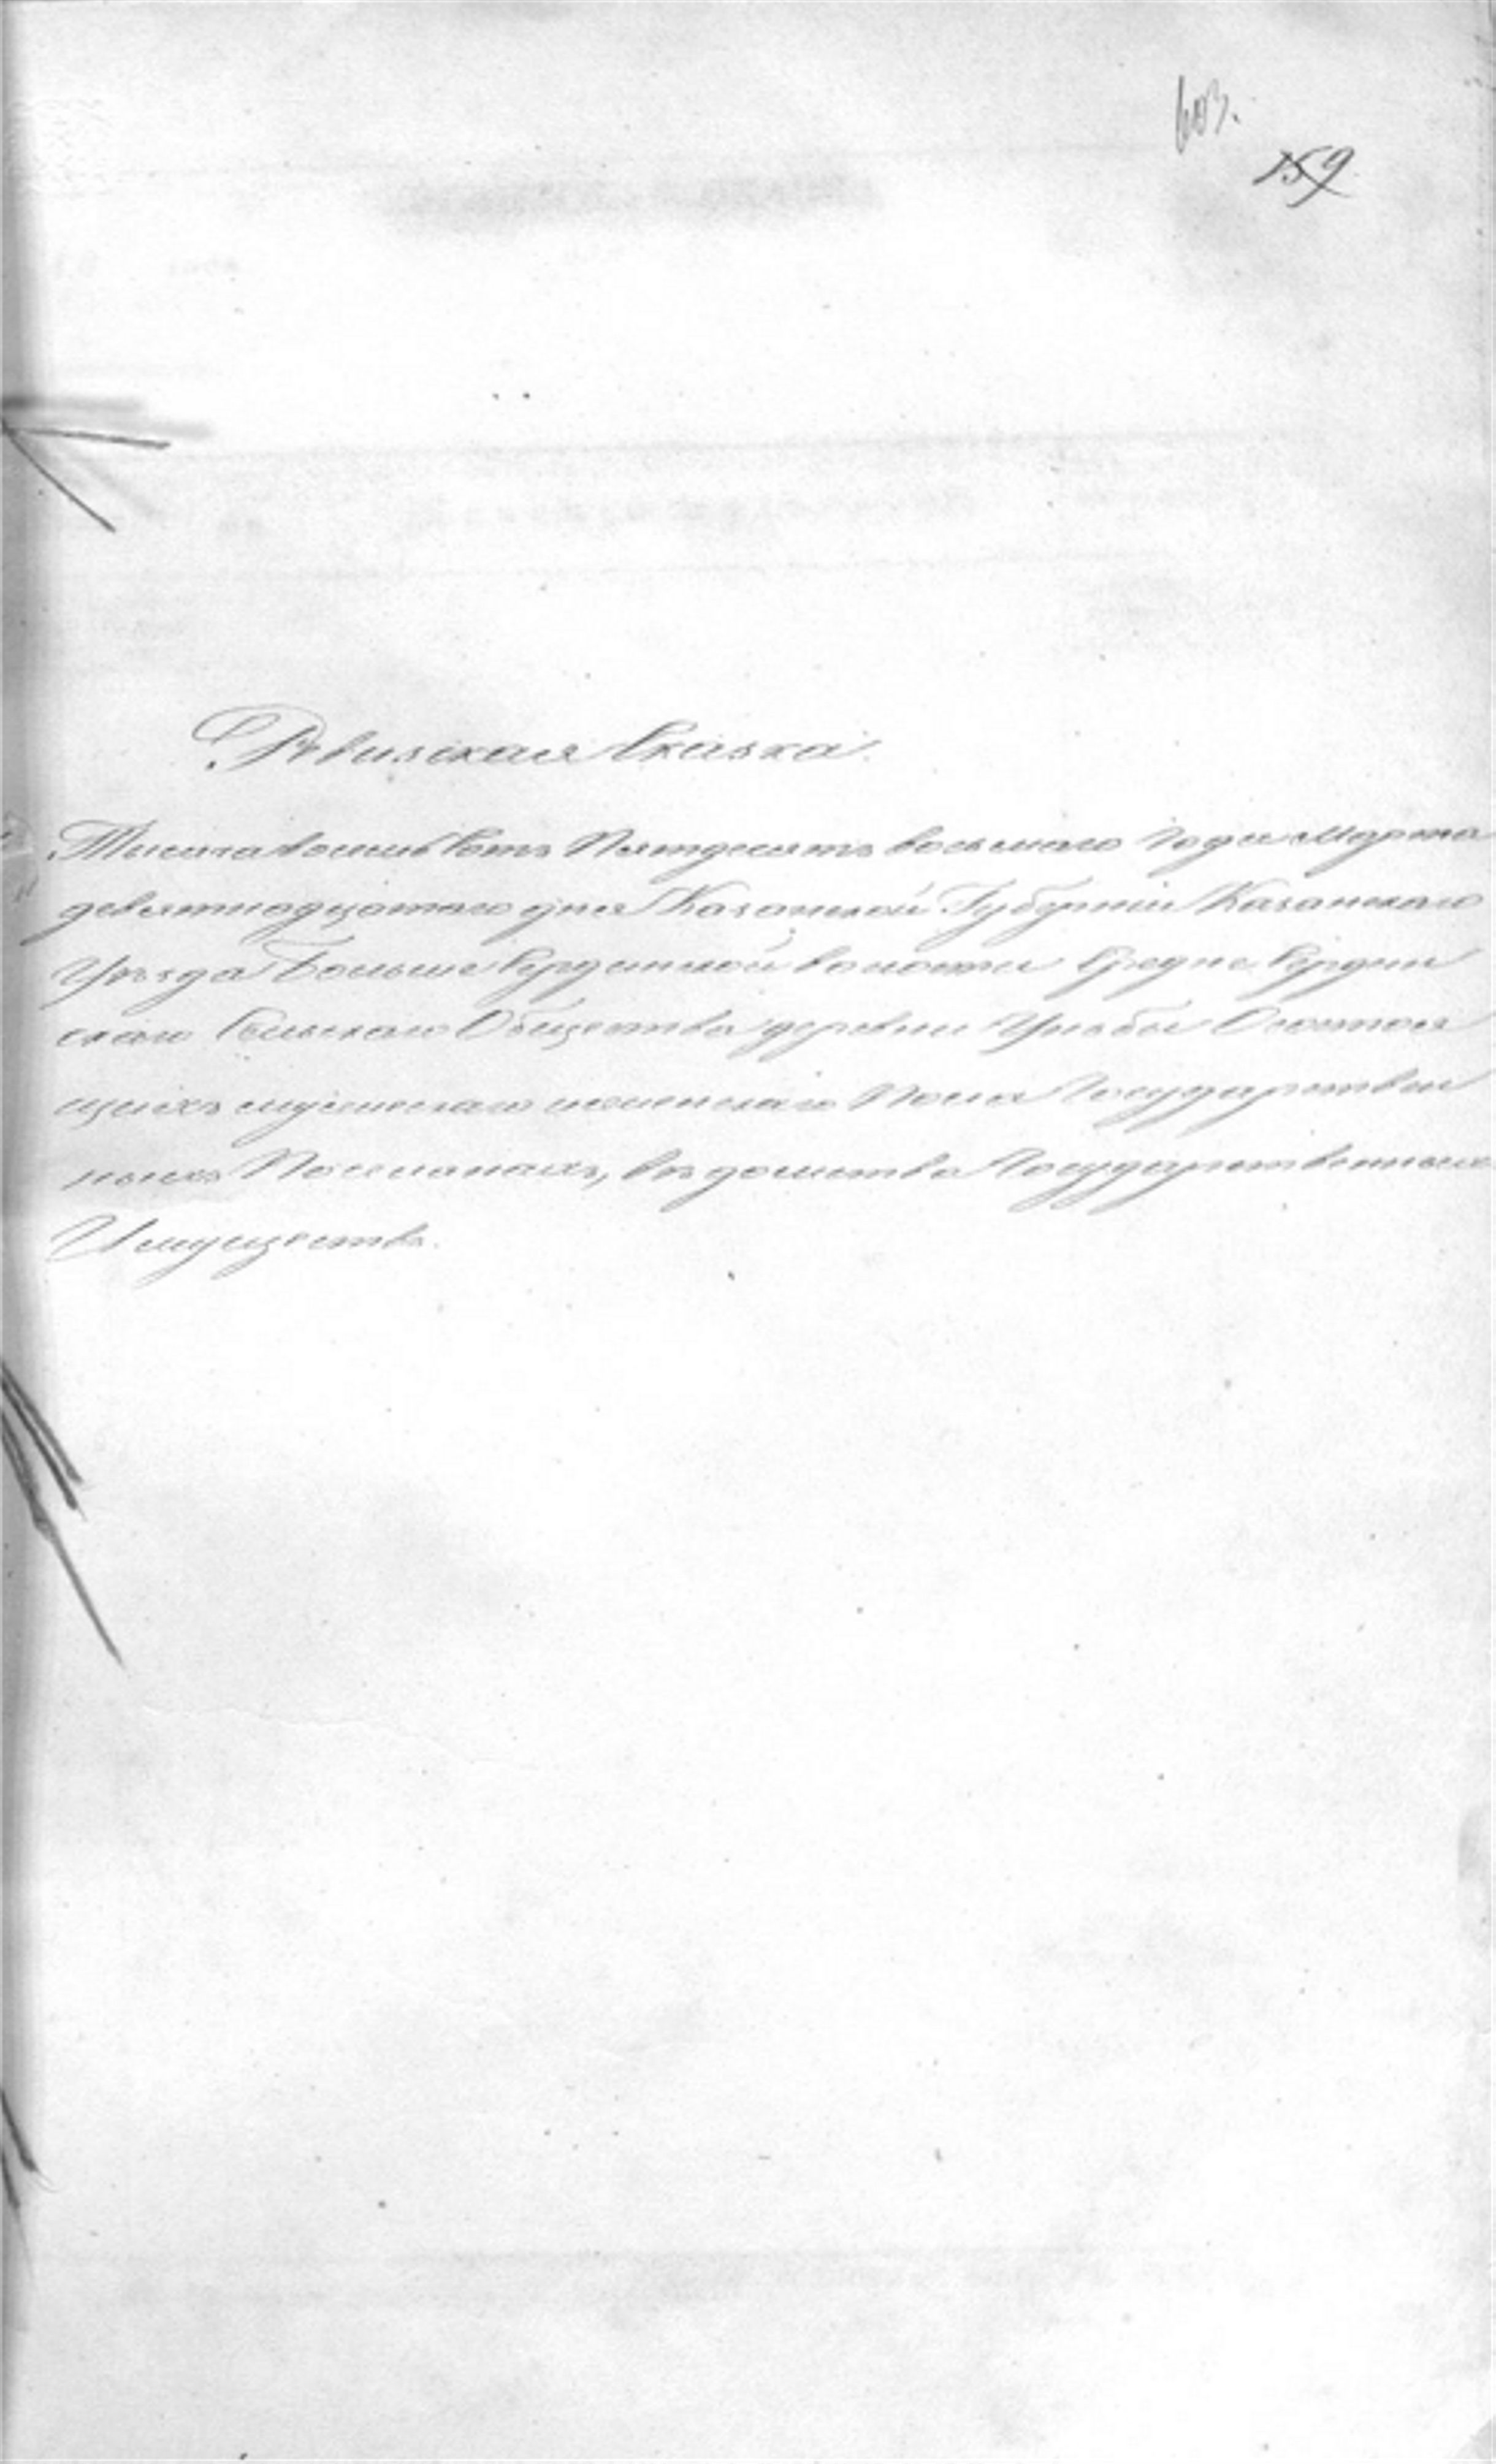 603.
159
Ревизская Сказка.
Тысяча восемь сотъ Пятдесятъ восьмаго года Марта
девятнадцатаго дня Казанской Губерніи Казанскаго
Уѣзда Больше Сердинской волости Средне Сердин
скаго Сельскаго Общества деревни Уньбы О состоя
щихъ мужескаго и женскаго Пола Государствен
ныхъ Поселянахъ, вѣдомства Государственныхъ
Имуществъ.